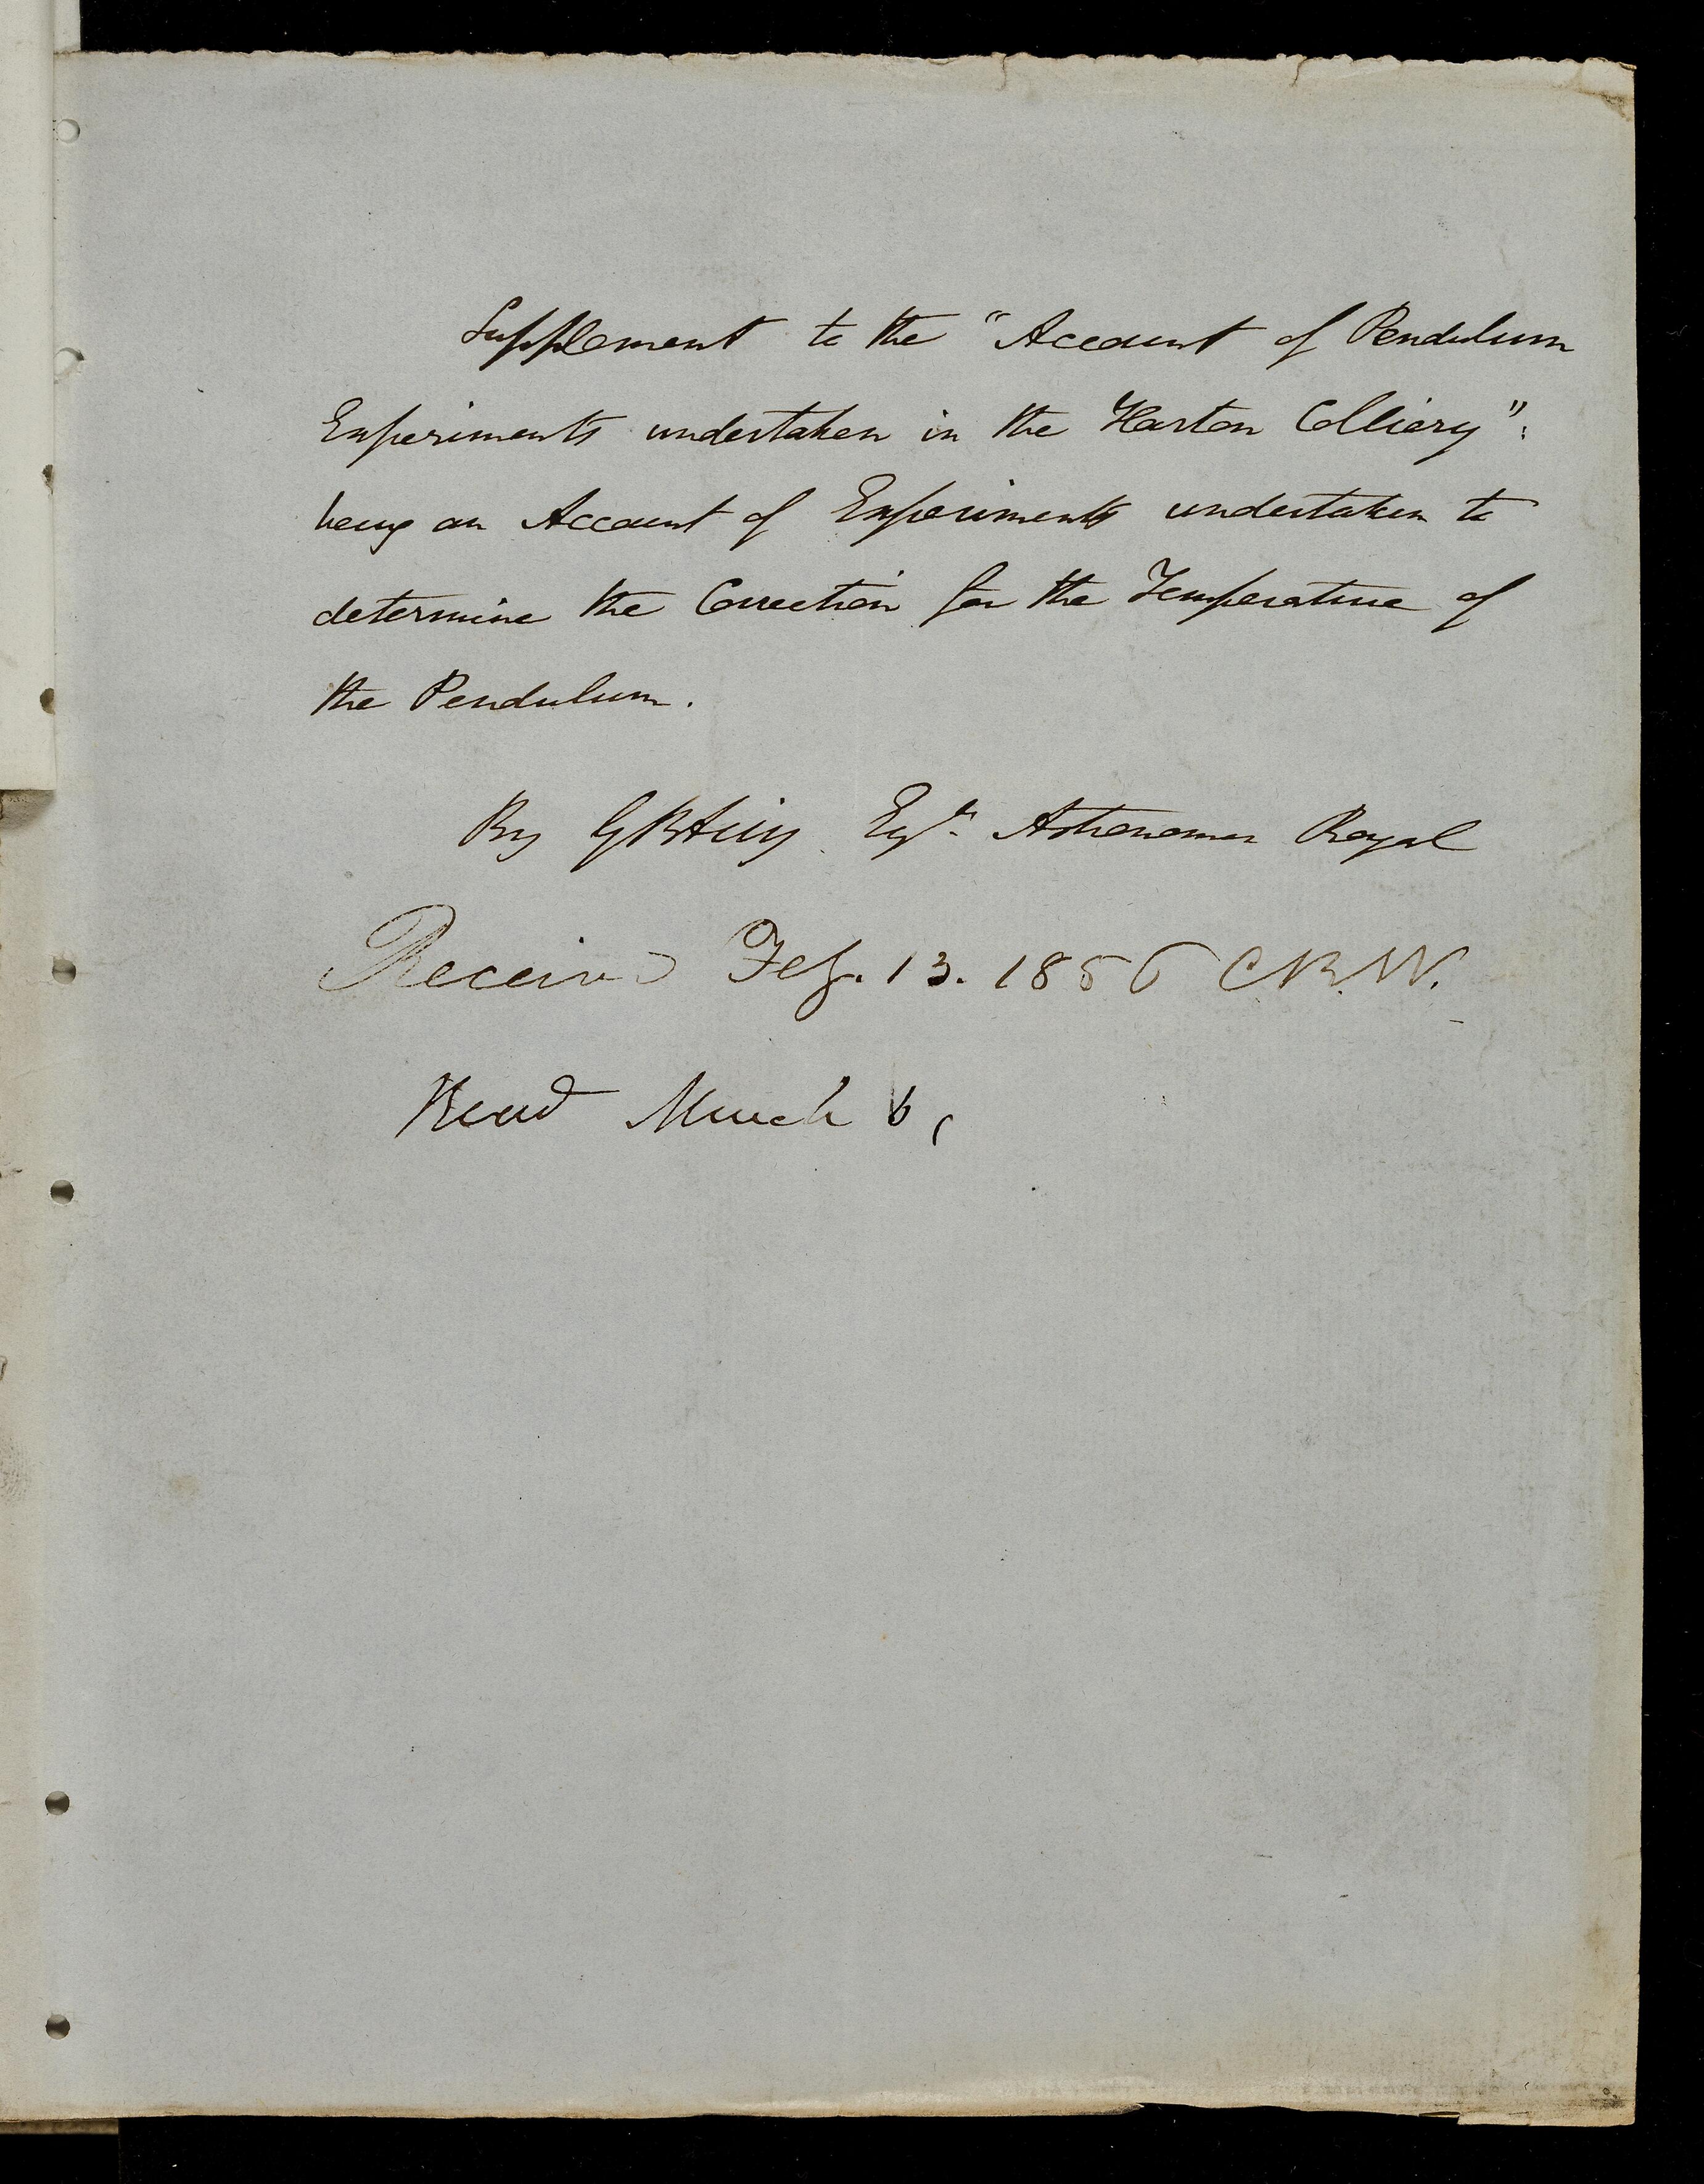 Supplement to the "Account of Pendulum
Experiments undertaken in the Harton Colliery":
being an Account of Experiments undertaken to
determine the Correction for the Temperature of
the Pendulum.
By G B Airy Esqre. Astronomer Royal
Received Feb. 13. 1856 C R W.
Read March 6,